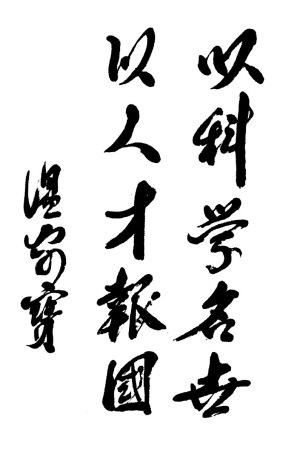 以科學名世
以人才報國
溫家寶